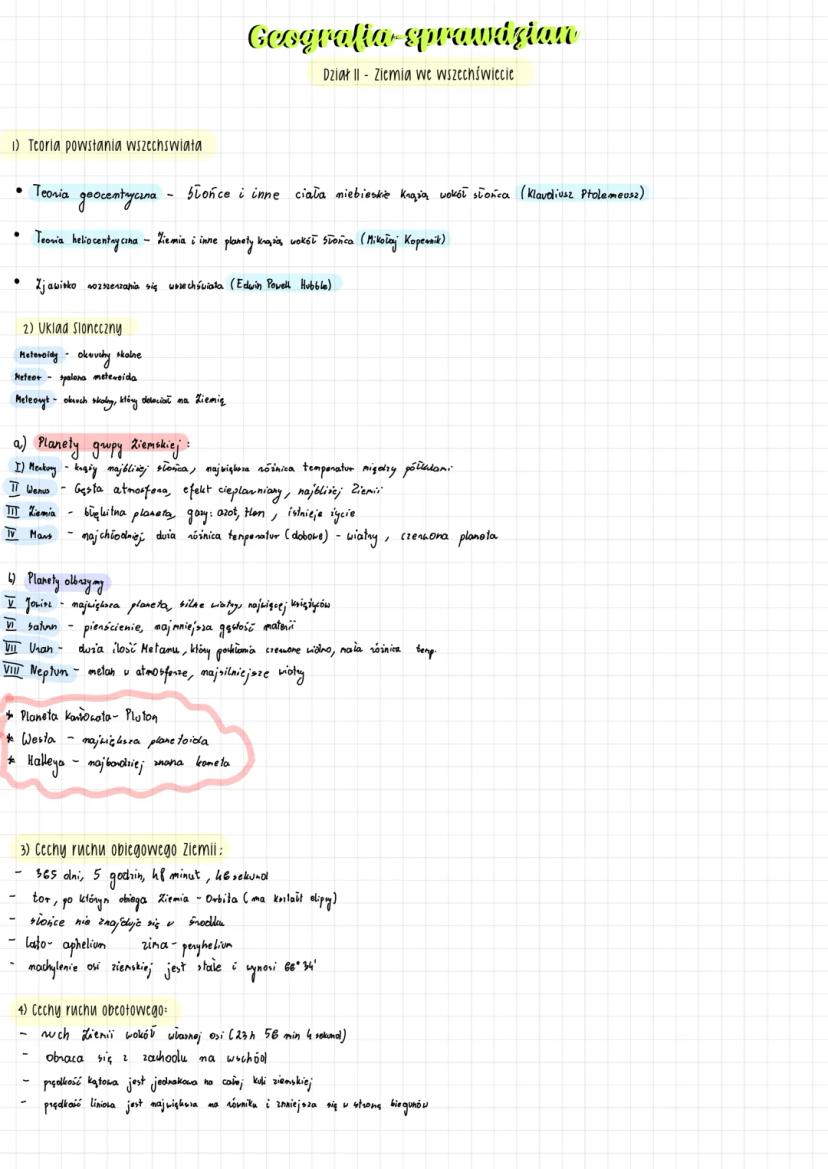 Geografia-sprawdzian
Dział II - Ziemia we wszechświecie
1) Teoria powstania wszechswiata
• Teoria geocentryczna - Słońce i inne ciała niebieskie krążą wokół słońca (Klaudiusz Ptolemeusz)
• Teoria heliocentryczna - Ziemia i inne planety krążą wokół Słońca (Mikołaj Kopernik)
• Zjawisko rozszerzania się wszechświata (Edwin Powell Hubble)
2) Uklad Sloneczny
Meteroidy - okruchy skalne
Meteor - spalona meteroida
Meteoryt - okruch skalny, który doleciał na Ziemię
a) Planety grupy Ziemskiej:
I) Merkury - krąży najbliżej słońca, największa różnica temperatur między półkulami
II Wenus - Gęsta atmosfera, efekt cieplarniany, najbliżej Ziemii
III Ziemia - błękitna planeta, gazy: azot, tlen, istnieje życie
IV Mars - najchłodniej, duża różnica temperatur (dobowe) - wiatry, czerwona planeta
b) Planety olbrzymy
V Jowisz - największa planeta, silne wiatry, najwięcej księżyców
VI Saturn - pierścienie, najmniejsza gęstość materii
VII Uran - duża ilość Metanu, który pochłania czerwone widmo, mała różnica temp.
VIII Neptun - metan w atmosferze, najsilniejsze wiatry
* Planeta karłowata - Pluton
* Westa - największa planetoida
* Halleya - najbardziej znana kometa
3) Cechy ruchu obiegowego Ziemii:
- 365 dni, 5 godzin, 48 minut, 46 sekund
- tor, po którym obiega Ziemia - Orbita (ma kształt elipsy)
- słońce nie znajduje się w środku
- Lato - aphelium zima - peryhelium
- nachylenie osi ziemskiej jest stałe i wynosi 66° 34'
4) Cechy ruchu obrotowego:
- ruch Ziemii wokół własnej osi (23 h 56 min 4 sekund)
- obraca się z zachodu na wschód
- prędkość kątowa jest jednakowa na całej kuli ziemskiej
- prędkość liniowa jest największa na równiku i zmniejsza się w stronę biegunów